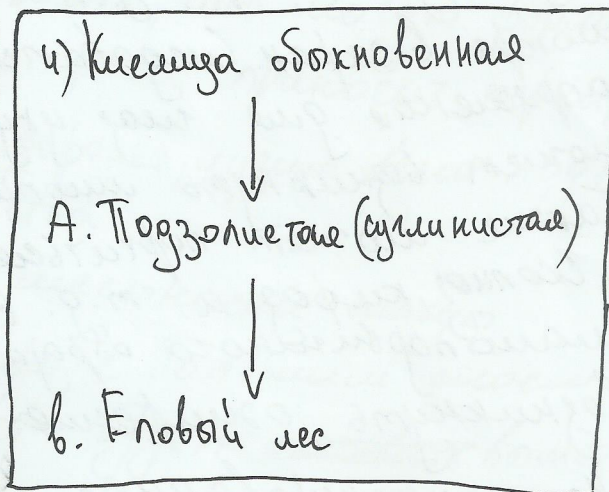 4) Кислица обыкновенная
А. Подзолистая (суглинистая)
в. Еловый лес